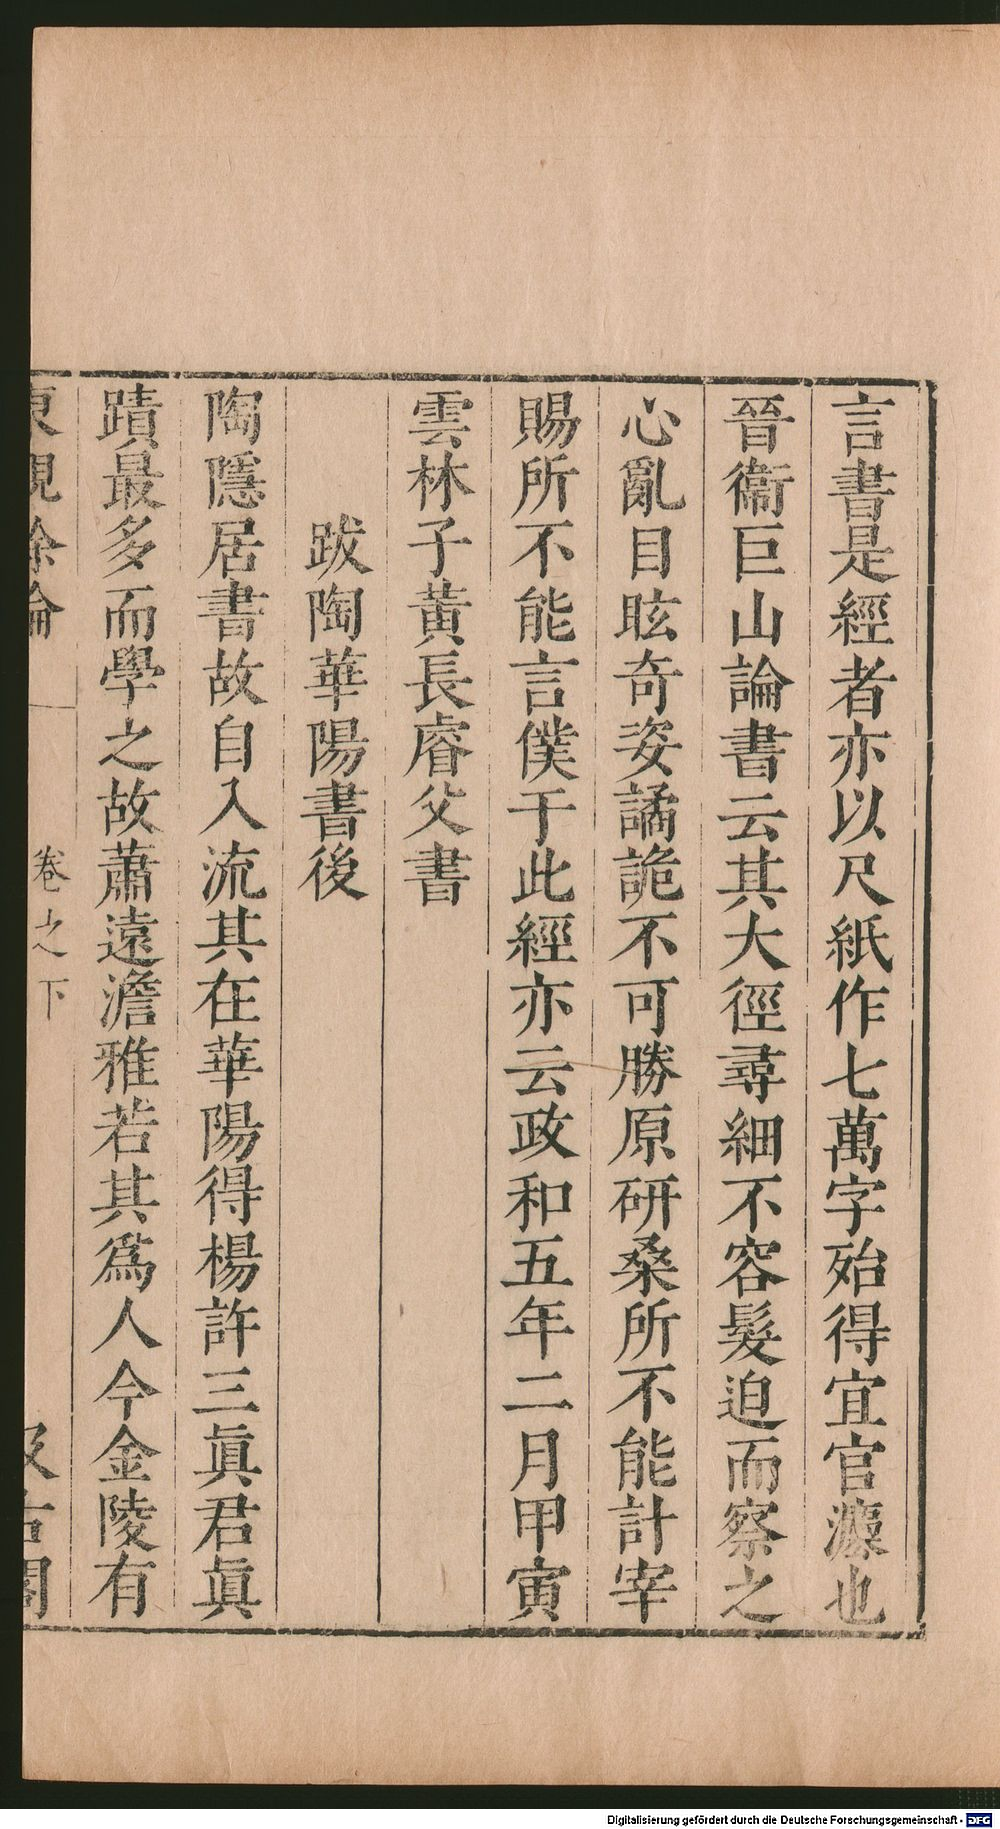 言書是經者亦以尺紙作七萬字殆得宜官瀍也
晉衞巨山論書云其大徑尋細不容髮迫而察之
心亂目眩奇姿譎詭不可勝原研桑所不能計宰
賜所不能言僕于此經亦云政和五年二月甲寅
雲林子黃長睿父書
跋陶華陽書後
陶隱居書故自入流其在華陽得楊許三眞君眞
蹟最多而學之故蕭遠澹雅若其爲人今金陵有
東觀餘論
卷之下
汲古閣
Digitalisierung gefördert durch die Deutsche Forschungsgemeinschaft - DFG